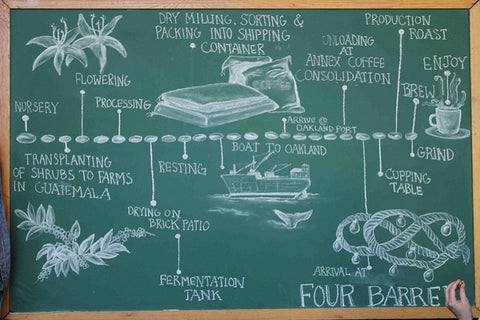 DRY MILLING, SORTING &
PACKING INTO SHIPPING
CONTAINER
PRODUCTION
ROAST
UNLOADING
AT
ANNEX COFFEE
CONSOLIDATION
ENJOY
FLOWERING
BREW
NURSERY
PROCESSING
ARRIVE @
OAKLAND PORT
TRANSPLANTING
OF SHRUBS TO FARMS
IN GUATEMALA
RESTING
BOAT TO OAKLAND
GRIND
CUPPING
TABLE
DRYING ON
BRICK PATIO
FERMENTATION
TANK
ARRIVAL AT
FOUR BARRE